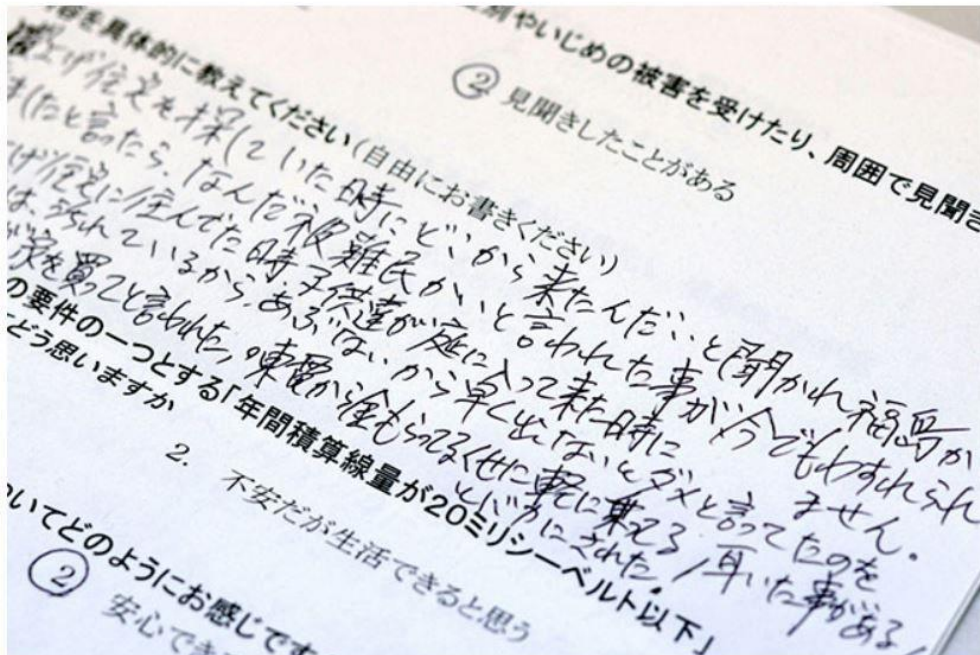 やいじめの被害を受けたり、周囲で見聞き
② 見聞きしたことがある
を具体的に教えてください(自由にお書きください)
上げ住宅を探していた時にどこから来たんだ、と聞かれ福島か
ましたと言ったら、なんだ避難民かいと言われた事が今でもわすれられ
ません。
げ住宅に住んでた時子供達が庭に入って来た時に
は、汚れているから、あぶないから早く出ないとダメと言ってたのを
聞いた事がある
家を買ってと言われた。東電から金もらってるくせに軽に乗ってる
とばかにされた。
の要件の一つとする「年間積算線量が20ミリシーベルト以下」
どう思いますか
2.
不安だが生活できると思う
いてどのようにお感じです
② 安心でき